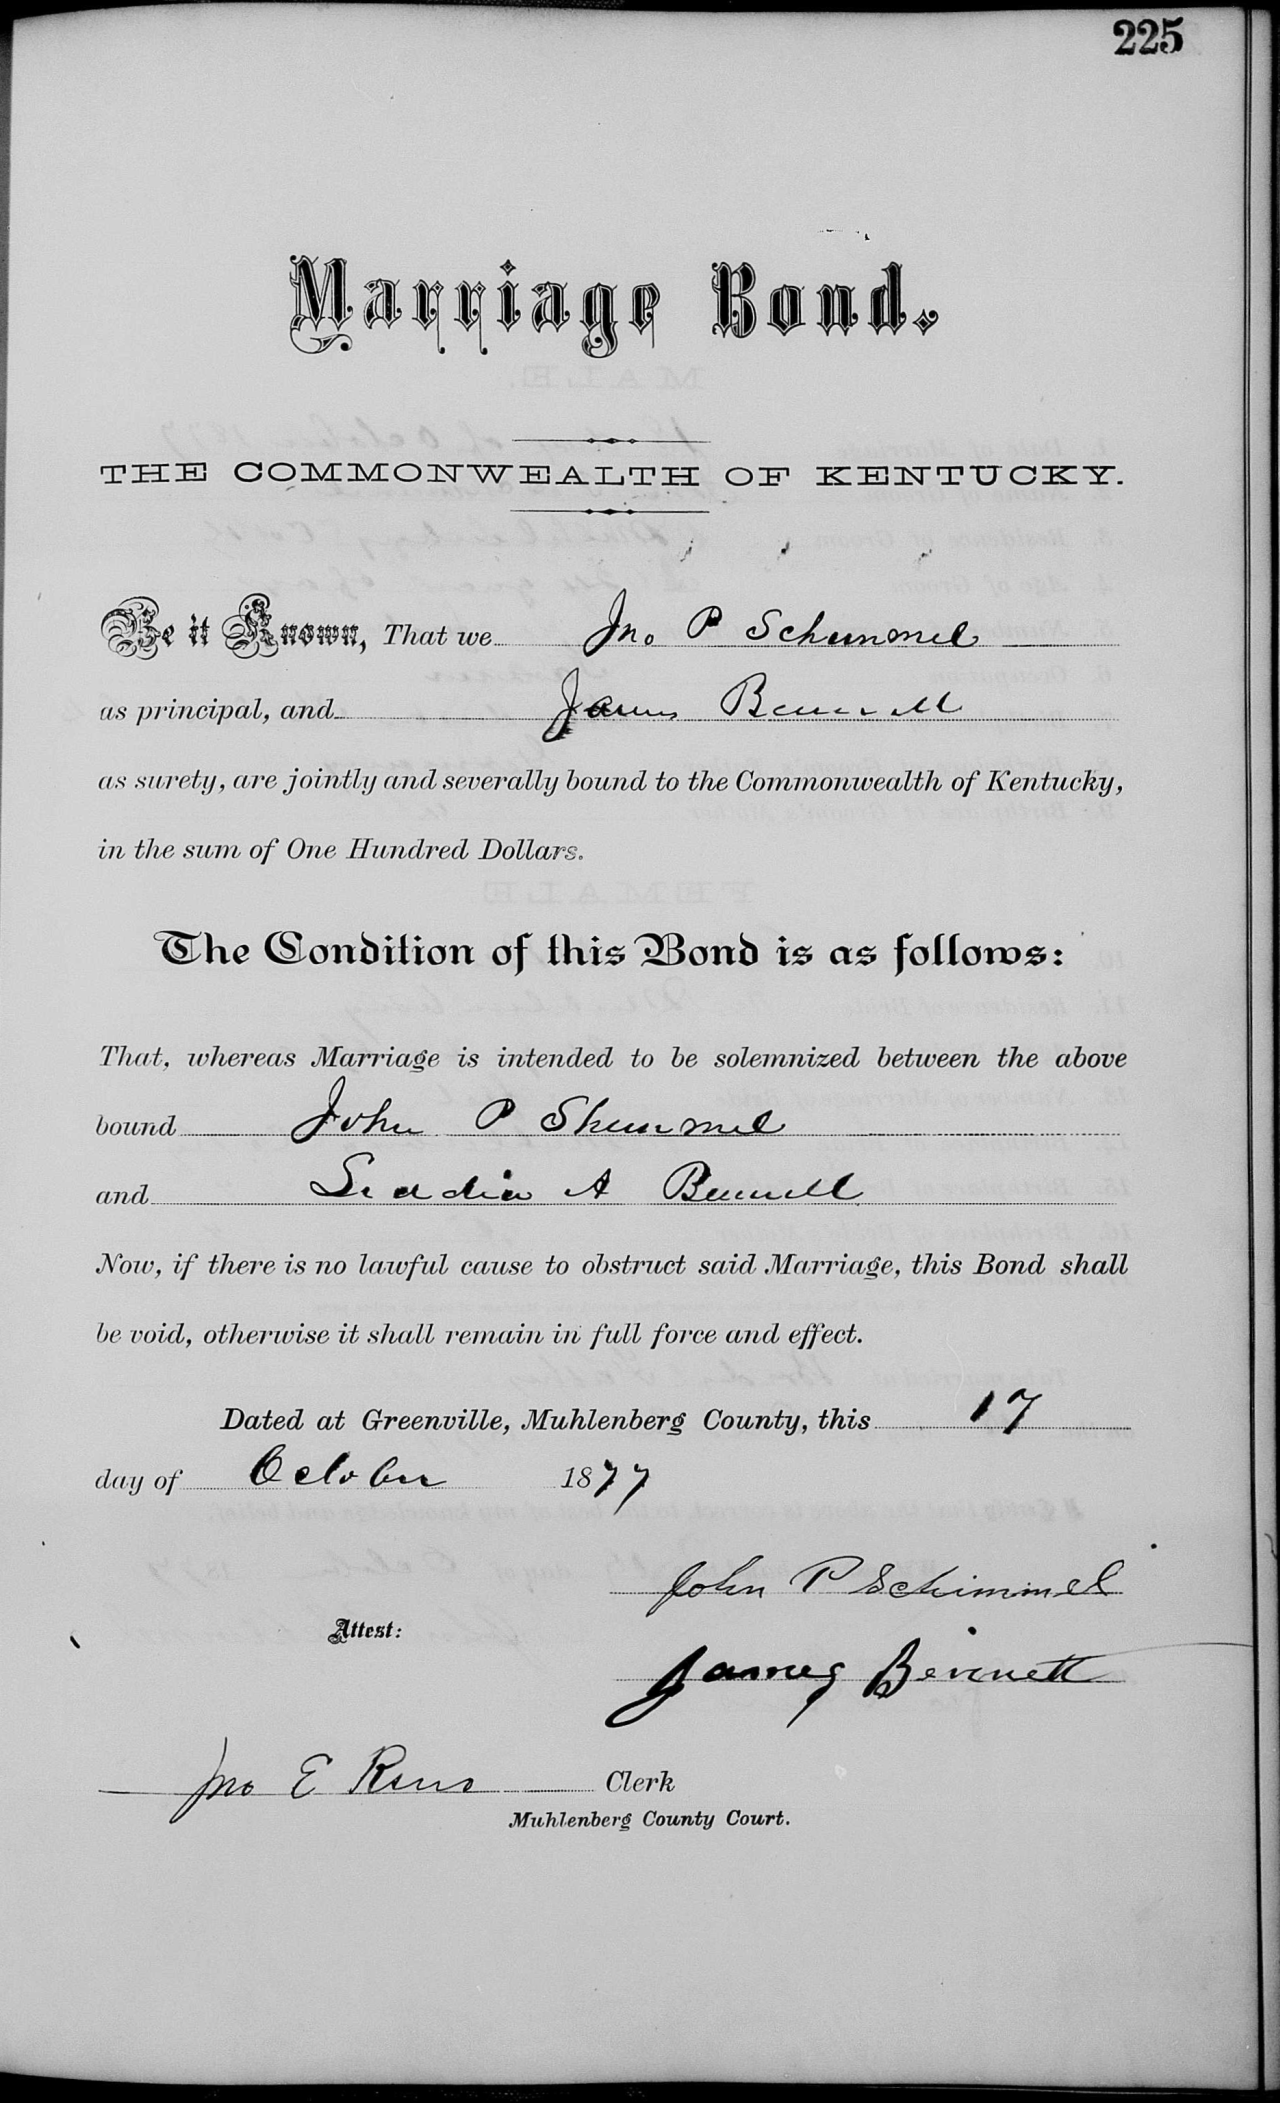 225
Marriage Bond.
THE COMMONWEALTH OF KENTUCKY.
Be it Known, That we Jno P Schimmel
as principal, and James Bennett
as surety, are jointly and severally bound to the Commonwealth of Kentucky,
in the sum of One Hundred Dollars.
The Condition of this Bond is as follows:
That, whereas Marriage is intended to be solemnized between the above
bound John P Shimmel
and A Bennett
Now, if there is no lawful cause to obstruct said Marriage, this Bond shall
be void, otherwise it shall remain in full force and effect.
Dated at Greenville, Muhlenberg County, this 17
day of October 1877
John P Schimmel
Attest:
James Bennett
Jno E Reno Clerk
Muhlenberg County Court.